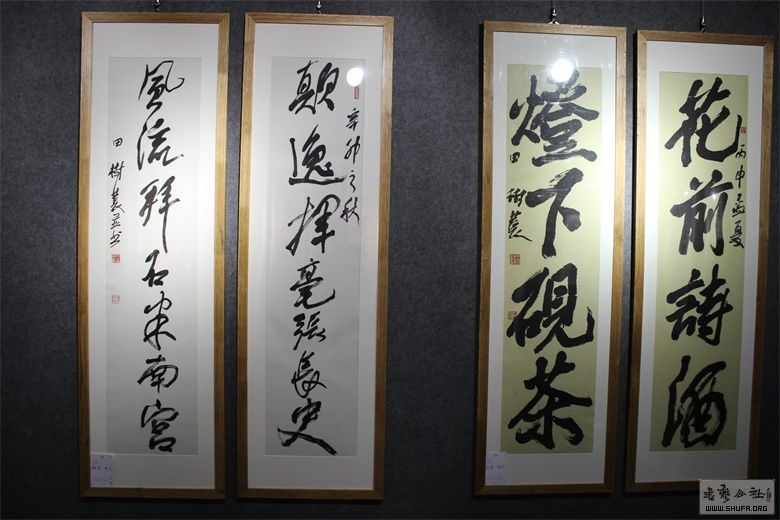 花前詩酒
丙申孟夏
燈下硯茶
田樹萇
顛逸揮毫張長史
辛卯之秋
風流拜石米南宮
田樹萇并书
書藝公社
WWW.SHUFA.ORG